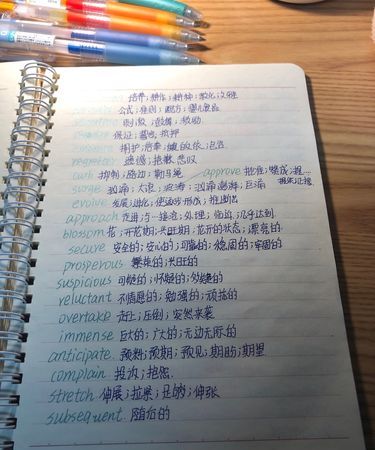 培养;耕作;耕种;教化;文雅
公式;准则;配方;婴儿食品
刺激;鼓舞;鼓动
保证;誓言;抵押
拥护;信奉;包含
遗憾;抱歉;悲叹
curb 抑制;路边;勒马绳 approve 批准;赞成;
surge 汹涌;大浪;波涛;汹涌澎湃;巨涌
evolve 发展;进化;使逐步形成;推断出
approach 走进;接洽;处理;临近;几乎达到
blossom 花;开花期;兴旺期;花开的状态;
secure 安全的;安心的;可靠的;稳固的;牢固的
prosperous 繁荣的;兴旺的
suspicious 可疑的;怀疑的;
reluctant 不情愿的;勉强的;顽抗的
overtake 赶上;压倒;突然来袭
immense 巨大的;广大的;无边无际的
anticipate 预料;预期;预见;期盼;期望
complain 投诉;抱怨.
stretch 伸展;拉紧;足够;伸张
subsequent 随后的